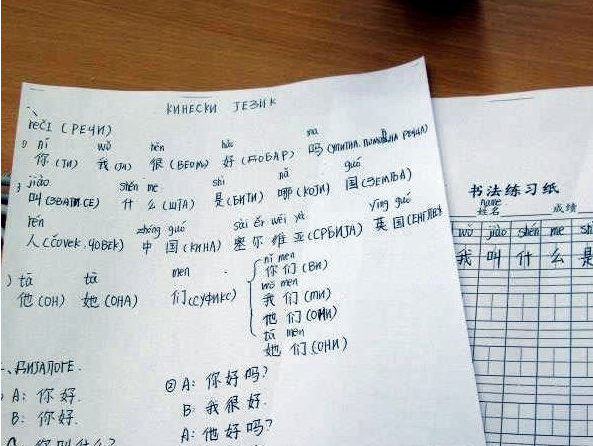 КИНЕСКИ ЈЕЗИК
REČI (РЕЧИ)
nǐ wǒ hěn hǎo ma
你 (ТИ) 我 (ЈА) 很 (ВЕОМА) 好 (ДОБАР) 吗 (УПИТНА, ПОМОЋНА РЕЧЦА)
jiào shén me shì nǎ guó
叫 (ЗВАТИ СЕ) 什么 (ШТА) 是 (БИТИ) 哪 (КОЈИ) 国 (ЗЕМЉА)
rén zhōng guó sài ěr wéi yà yīng guó
人 (ČOVEK, ЧОВЕК) 中国 (КИНА) 塞尔维亚 (СРБИЈА) 英国
tā tā men
他 (ОН) 她 (ОНА) 们 (СУФИКС)
nǐ men
你们 (ВИ)
wǒ men
我们 (МИ)
他们 (ОНИ)
tā men
她们 (ОНИ)
一、ДИЈАЛОГЕ.
A: 你好.
B: 你好.
② A: 你好吗?
B: 我很好.
A: 他好吗?
书法练习纸
name
姓名 成绩
wǒ jiào shén me
我 叫 什 么 是